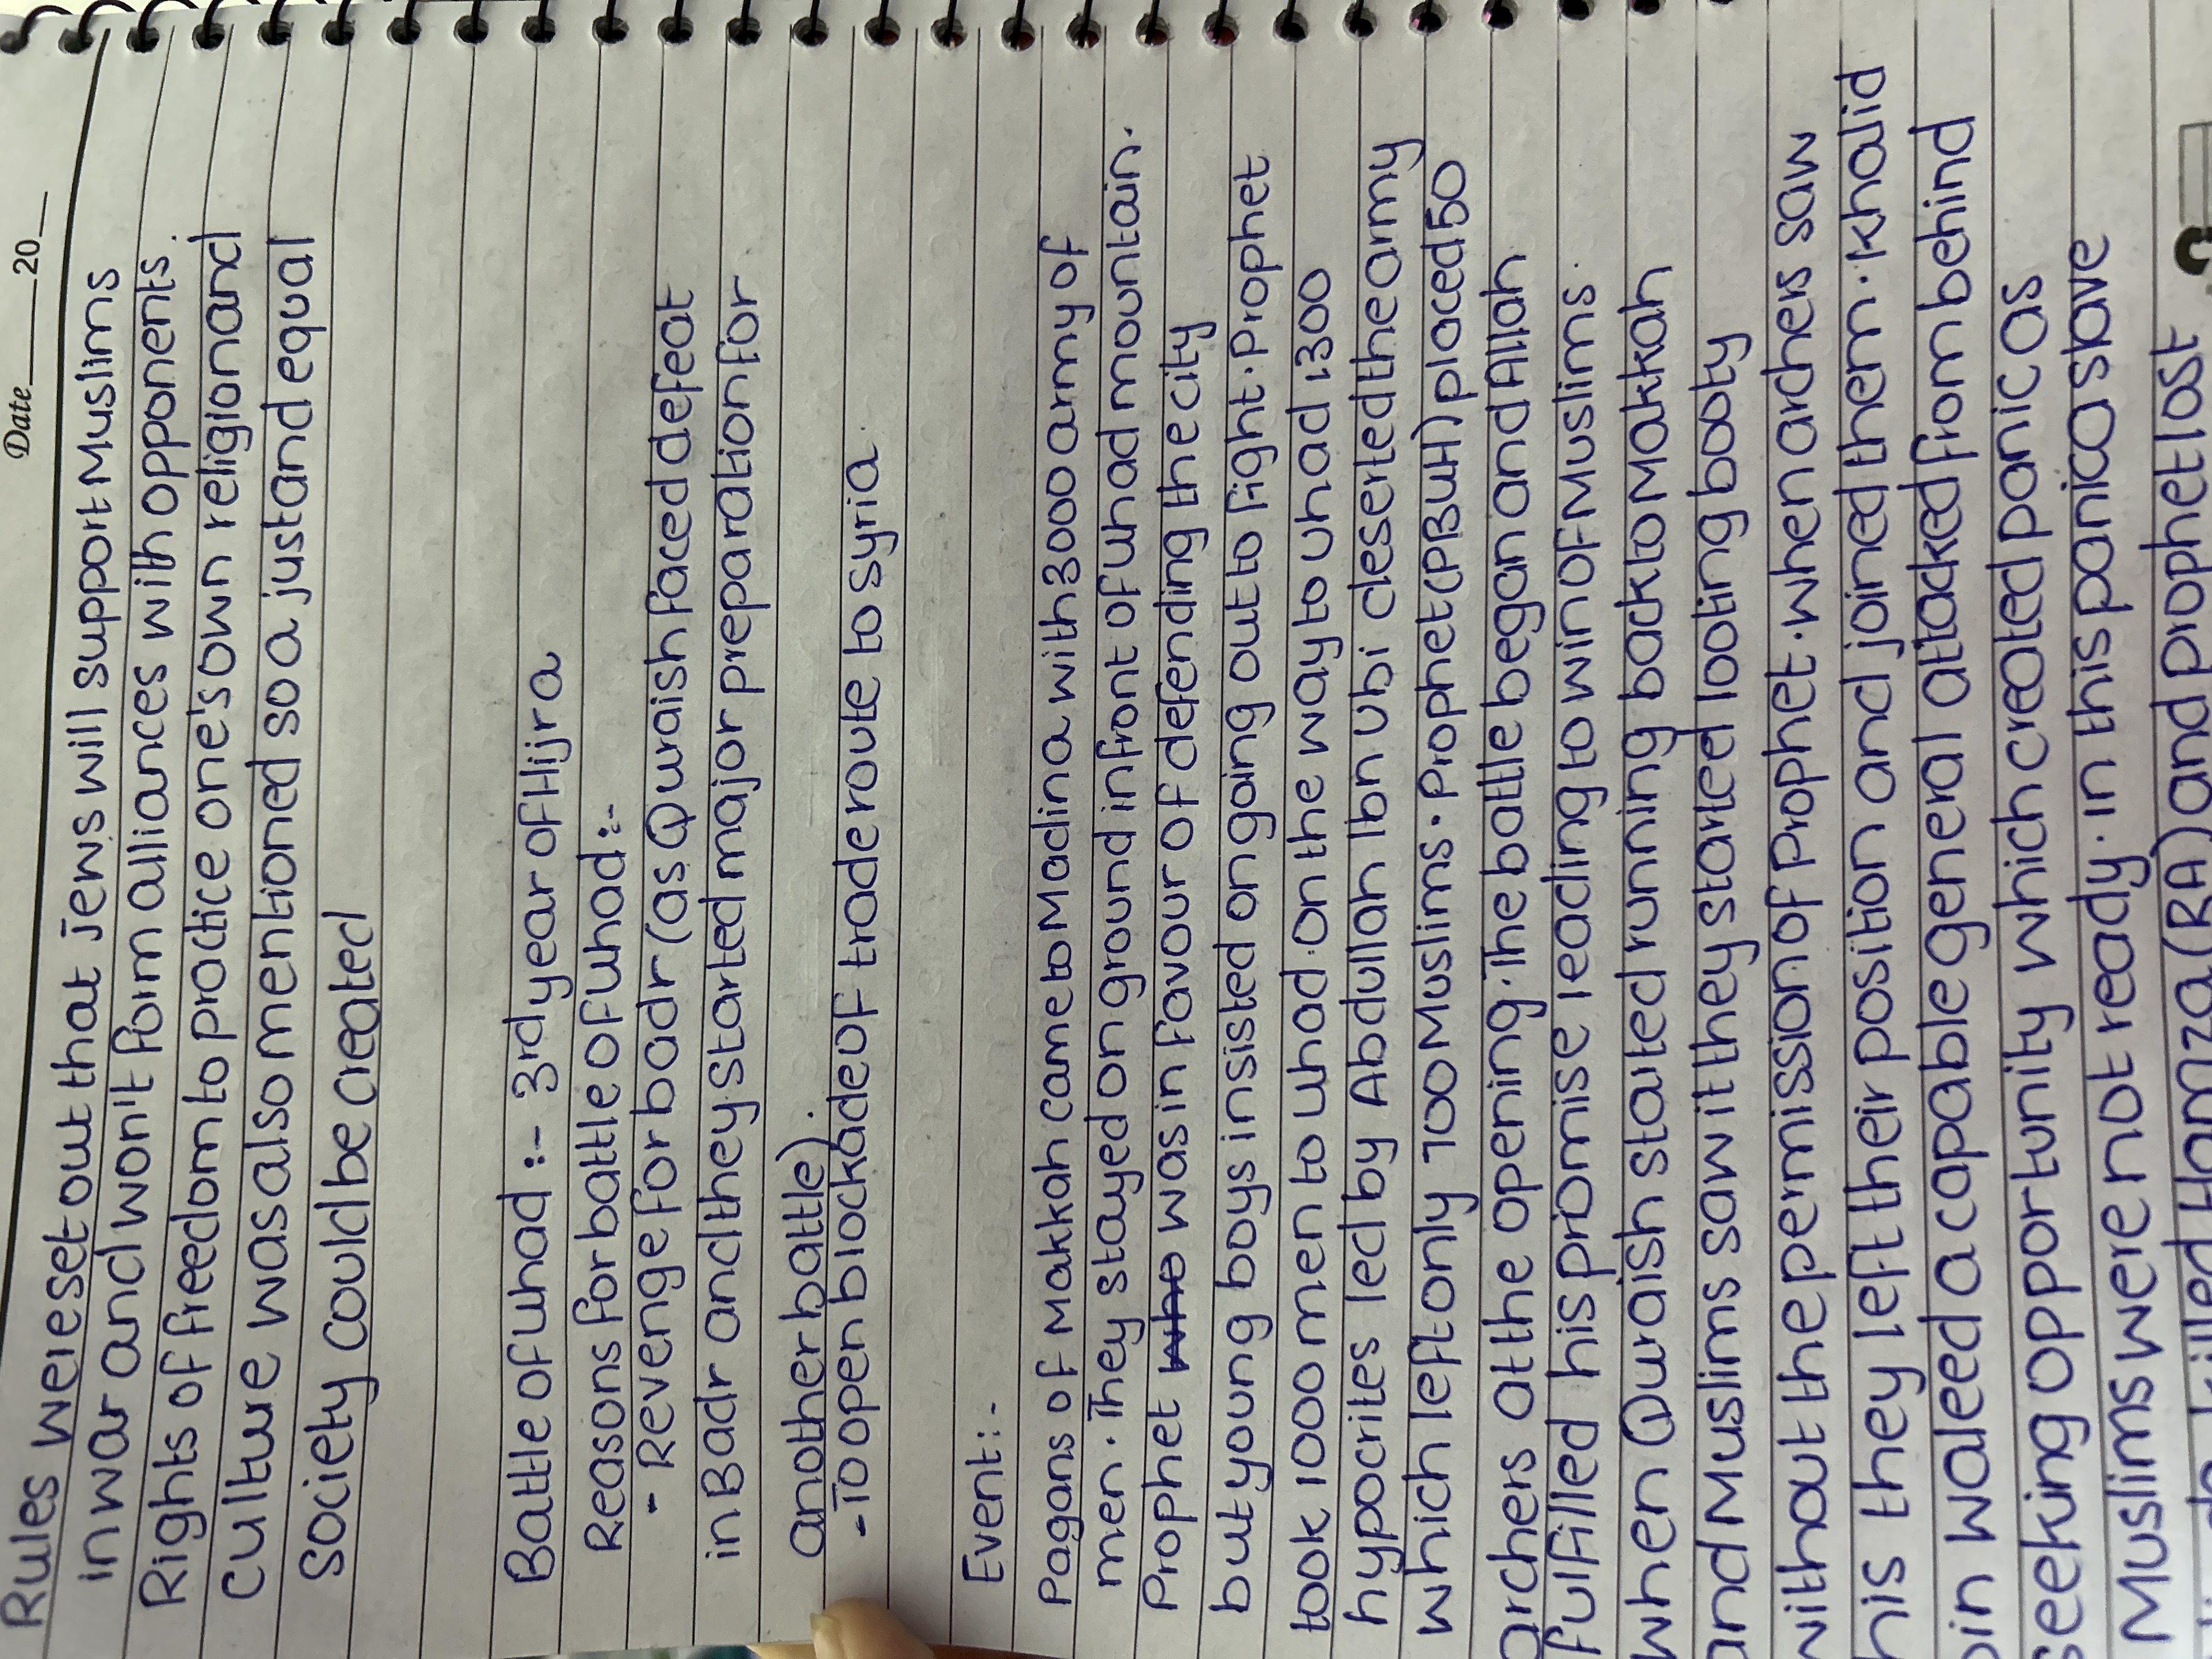 Date____20__
Rules were set out that Jews will support Muslims
in war and won't form alliances with opponents.
Rights of freedom to practice one's own religion and
culture was also mentioned so a just and equal
society could be created
Battle of uhad :- 3rd year of Hijra
Reasons for battle of uhad :-
- Revenge for badr (as Quraish faced defeat
in Badr and they started major preparation for
another battle).
- To open blockade of trade route to syria
Event :-
Pagans of Makkah came to Madina with 3000 army of
men. They stayed on ground infront of uhad mountain.
Prophet who was in favour of defending the city
but young boys insisted on going out to fight. Prophet
took 1000 men to uhad. on the way to uhad 1300
hypocrites led by Abdullah Ibn Ubi deserted the army
which left only 700 Muslims. Prophet (PBUH) placed 50
archers at the opening. The battle began and Allah
fulfilled his promise leading to win of Muslims.
when Quraish started running back to Makkah
and Muslims saw it they started looting booty
without the permission of Prophet. when archers saw
his they left their position and joined them. Khalid
bin waleed a capable general attacked from behind
seeking opportunity which created panic as
Muslims were not ready. in this panic a slave
killed Hamza (RA) and prophet lost